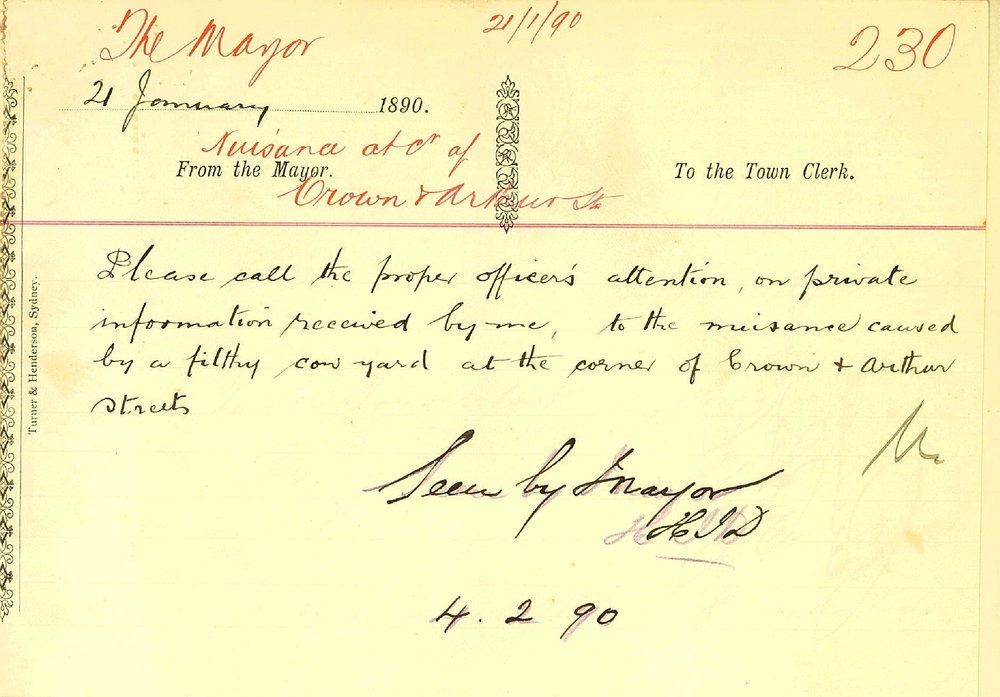 The Mayor
21/1/90
230
21 January 1890.
Nuisance at Cr of
From the Mayor.
To the Town Clerk.
Crown & Arthur Sts
Please call the proper officer's attention, on private
information received by me, to the nuisance caused
by a filthy cow yard at the corner of Crown & Arthur
Streets
Seen by Mayor
H I D
4.2 90
Turner & Henderson, Sydney.